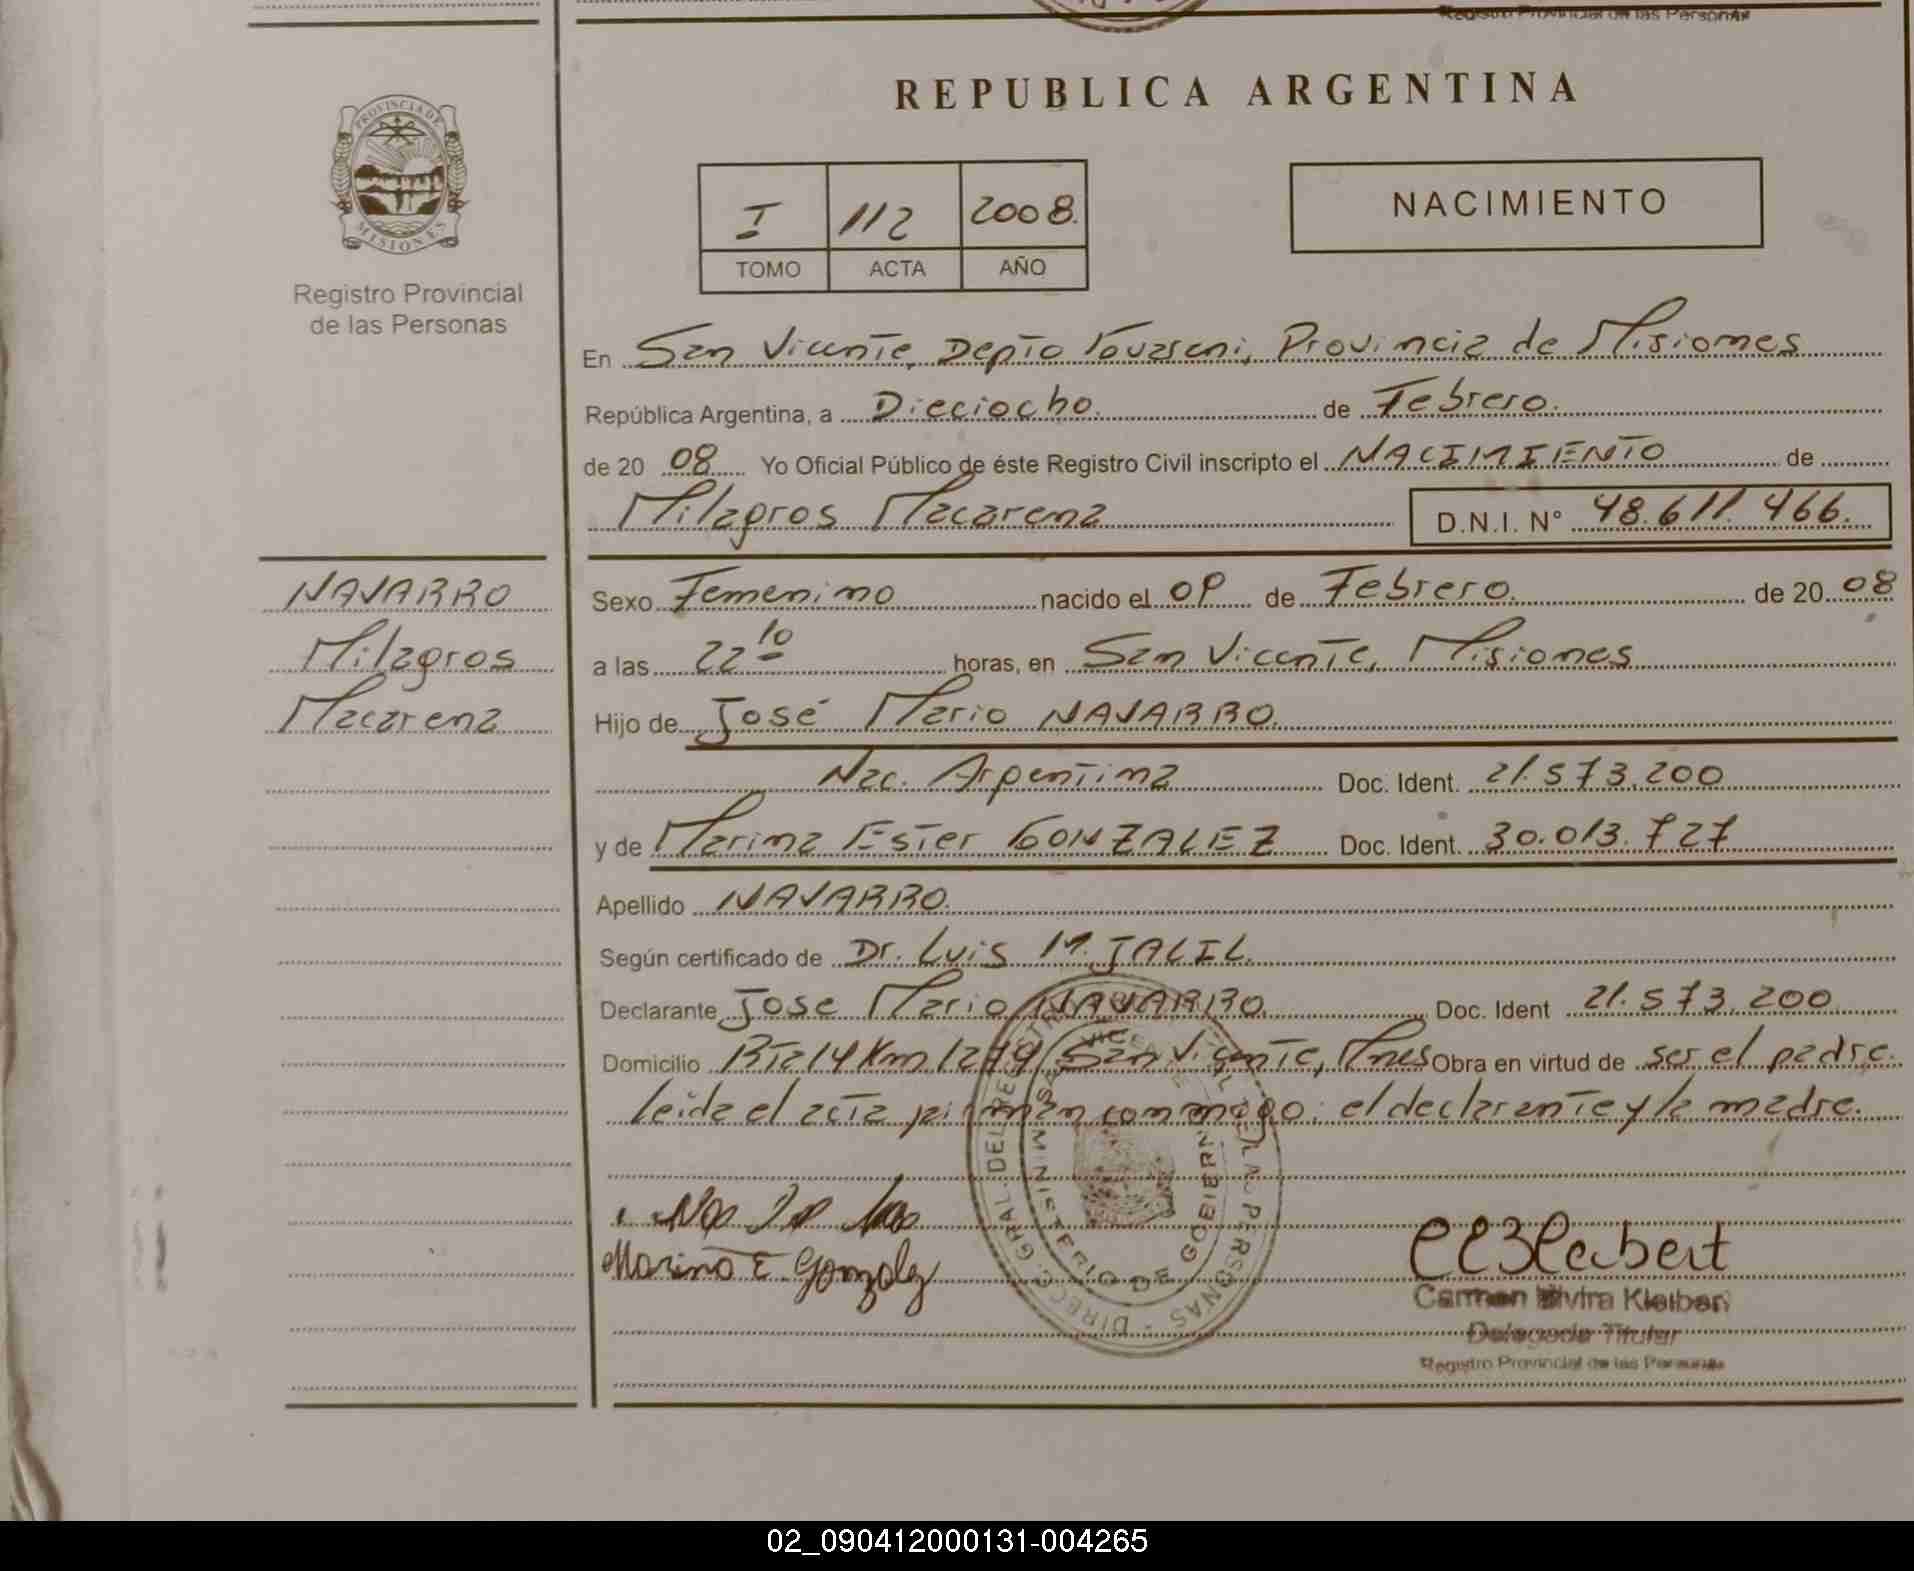 Registro Provincial de las Personas
PROVINCIA DE
MISIONES
Registro Provincial
de las Personas
REPUBLICA ARGENTINA
I 112 2008.
TOMO ACTA AÑO
NACIMIENTO
En San Vicente, Depto Guaraní, Provincia de Misiones
República Argentina, a Dieciocho. de Febrero.
de 20 08 Yo Oficial Público de éste Registro Civil inscripto el NACIMIENTO de
Milagros Macarena D.N.I. N° 48.611.466.
NAVARRO
Milagros
Macarena
Sexo Femenino nacido el 09 de Febrero. de 20 08
a las 22 10 horas, en San Vicente, Misiones
Hijo de José Mario NAVARRO.
Nac. Argentina Doc. Ident. 21.573.200
y de Marina Ester GONZALEZ Doc. Ident. 30.013.727
Apellido NAVARRO.
Según certificado de Dr. Luis M. JALIL.
Declarante Jose Mario NAVARRO. Doc. Ident 21.573.200
Domicilio Rta 14 Km 1279 San Vicente, Mnes Obra en virtud de ser el padre.
leida el acta, firman conmigo: el declarante y la madre.
Marina E. Gonzalez
DIRECC. GRAL. DEL REGISTRO CIVIL DE LAS PERSONAS
MINISTERIO DE GOBIERNO
SAN VICENTE
Carmen Elvira Kleibert
Delegada Titular
Registro Provincial de las Personas
02_090412000131-004265